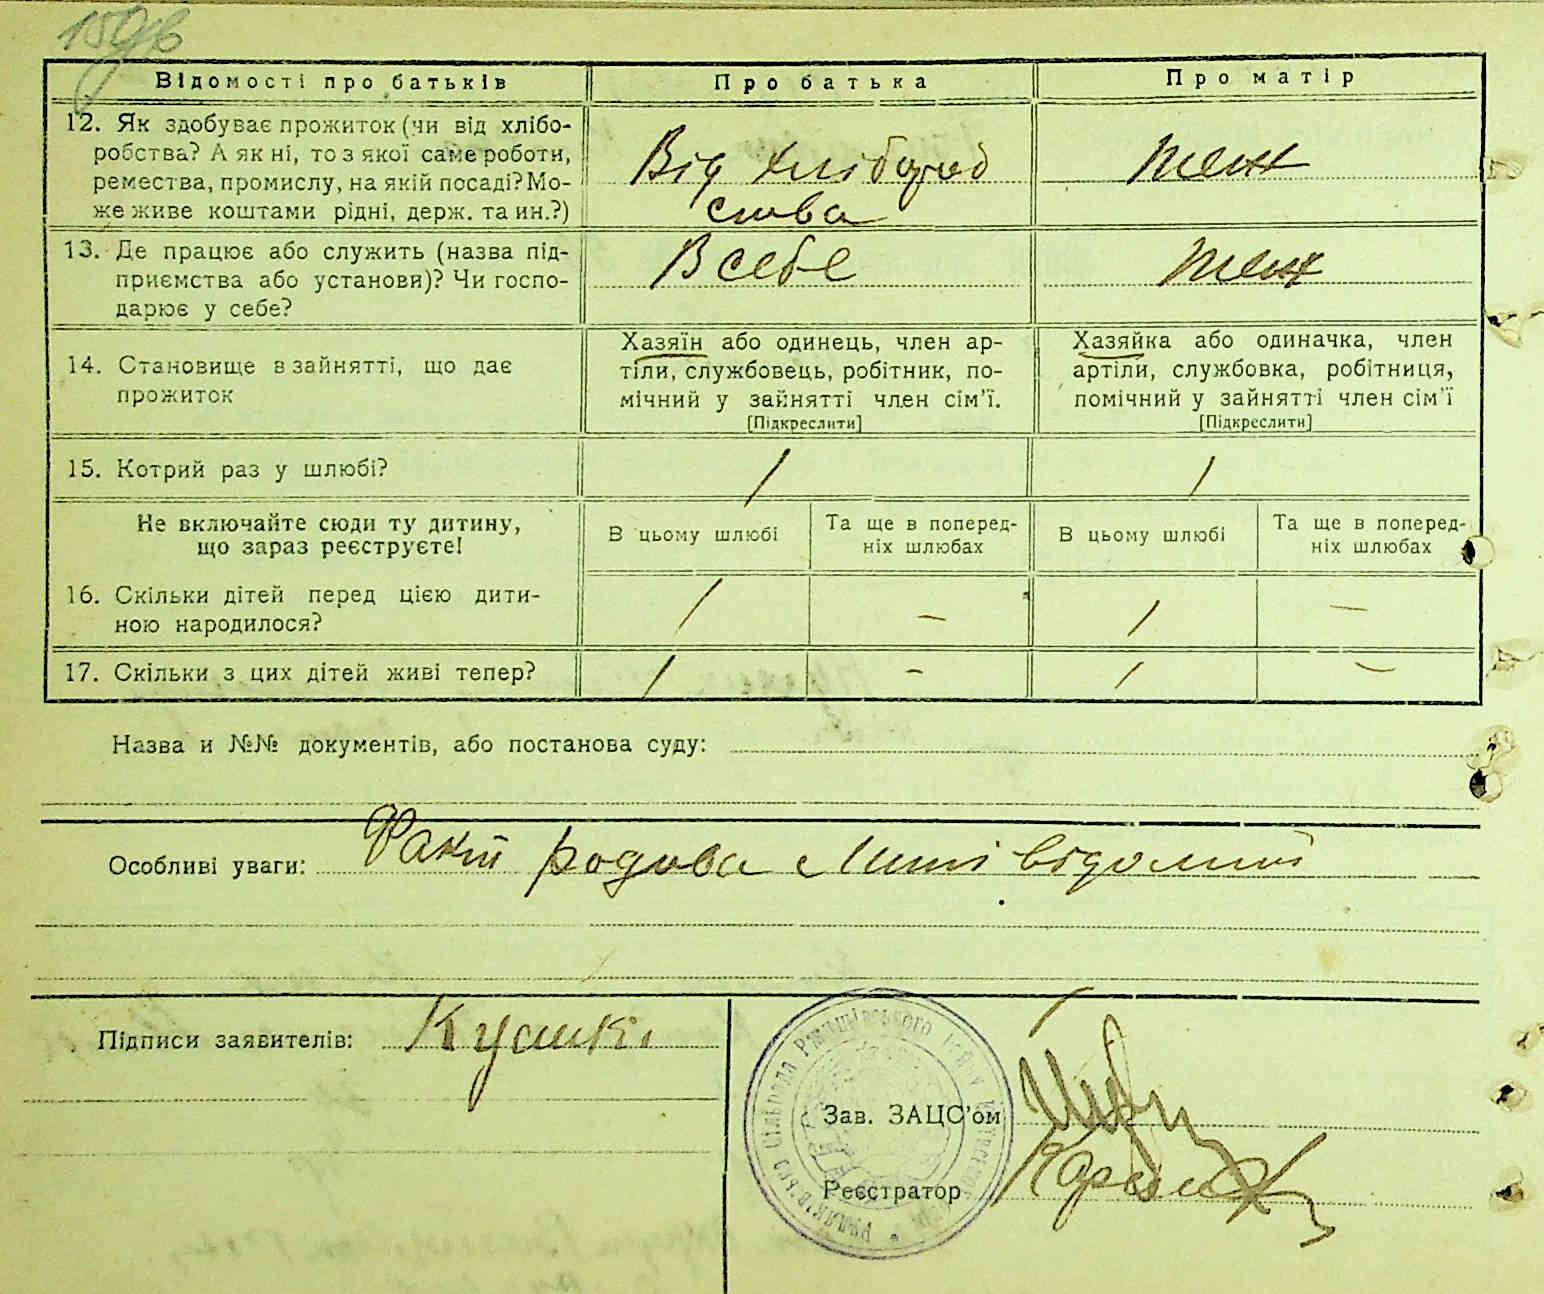 159б
Відомості про батьків
Про батька
Про матір
12. Як здобуває прожиток (чи від хлібо-
робства? А як ні, то з якої саме роботи,
ремества, промислу, на якій посаді? Мо-
же живе коштами рідні, держ. та ин.?)
Від хлібороб
ства
теж
13. Де працює або служить (назва під-
приємства або установи)? Чи госпо-
дарює у себе?
В себе
теж
14. Становище в зайнятті, що дає
прожиток
Хазяїн або одинець, член ар-
тіли, службовець, робітник, по-
мічний у зайнятті член сім'ї.
[Підкреслити]
Хазяйка або одиначка, член
артіли, службовка, робітниця,
помічний у зайнятті член сім'ї
[Підкреслити]
15. Котрий раз у шлюбі?
1
1
Не включайте сюди ту дитину,
що зараз реєструєте!
В цьому шлюбі
Та ще в поперед-
ніх шлюбах
В цьому шлюбі
Та ще в поперед-
ніх шлюбах
16. Скільки дітей перед цією дити-
ною народилося?
1
—
1
—
17. Скільки з цих дітей живі тепер?
1
—
1
—
Назва и №№ документів, або постанова суду:
Особливі уваги: Факт родова мині відомий
Підписи заявителів:
Зав. ЗАЦС'ом
Реєстратор